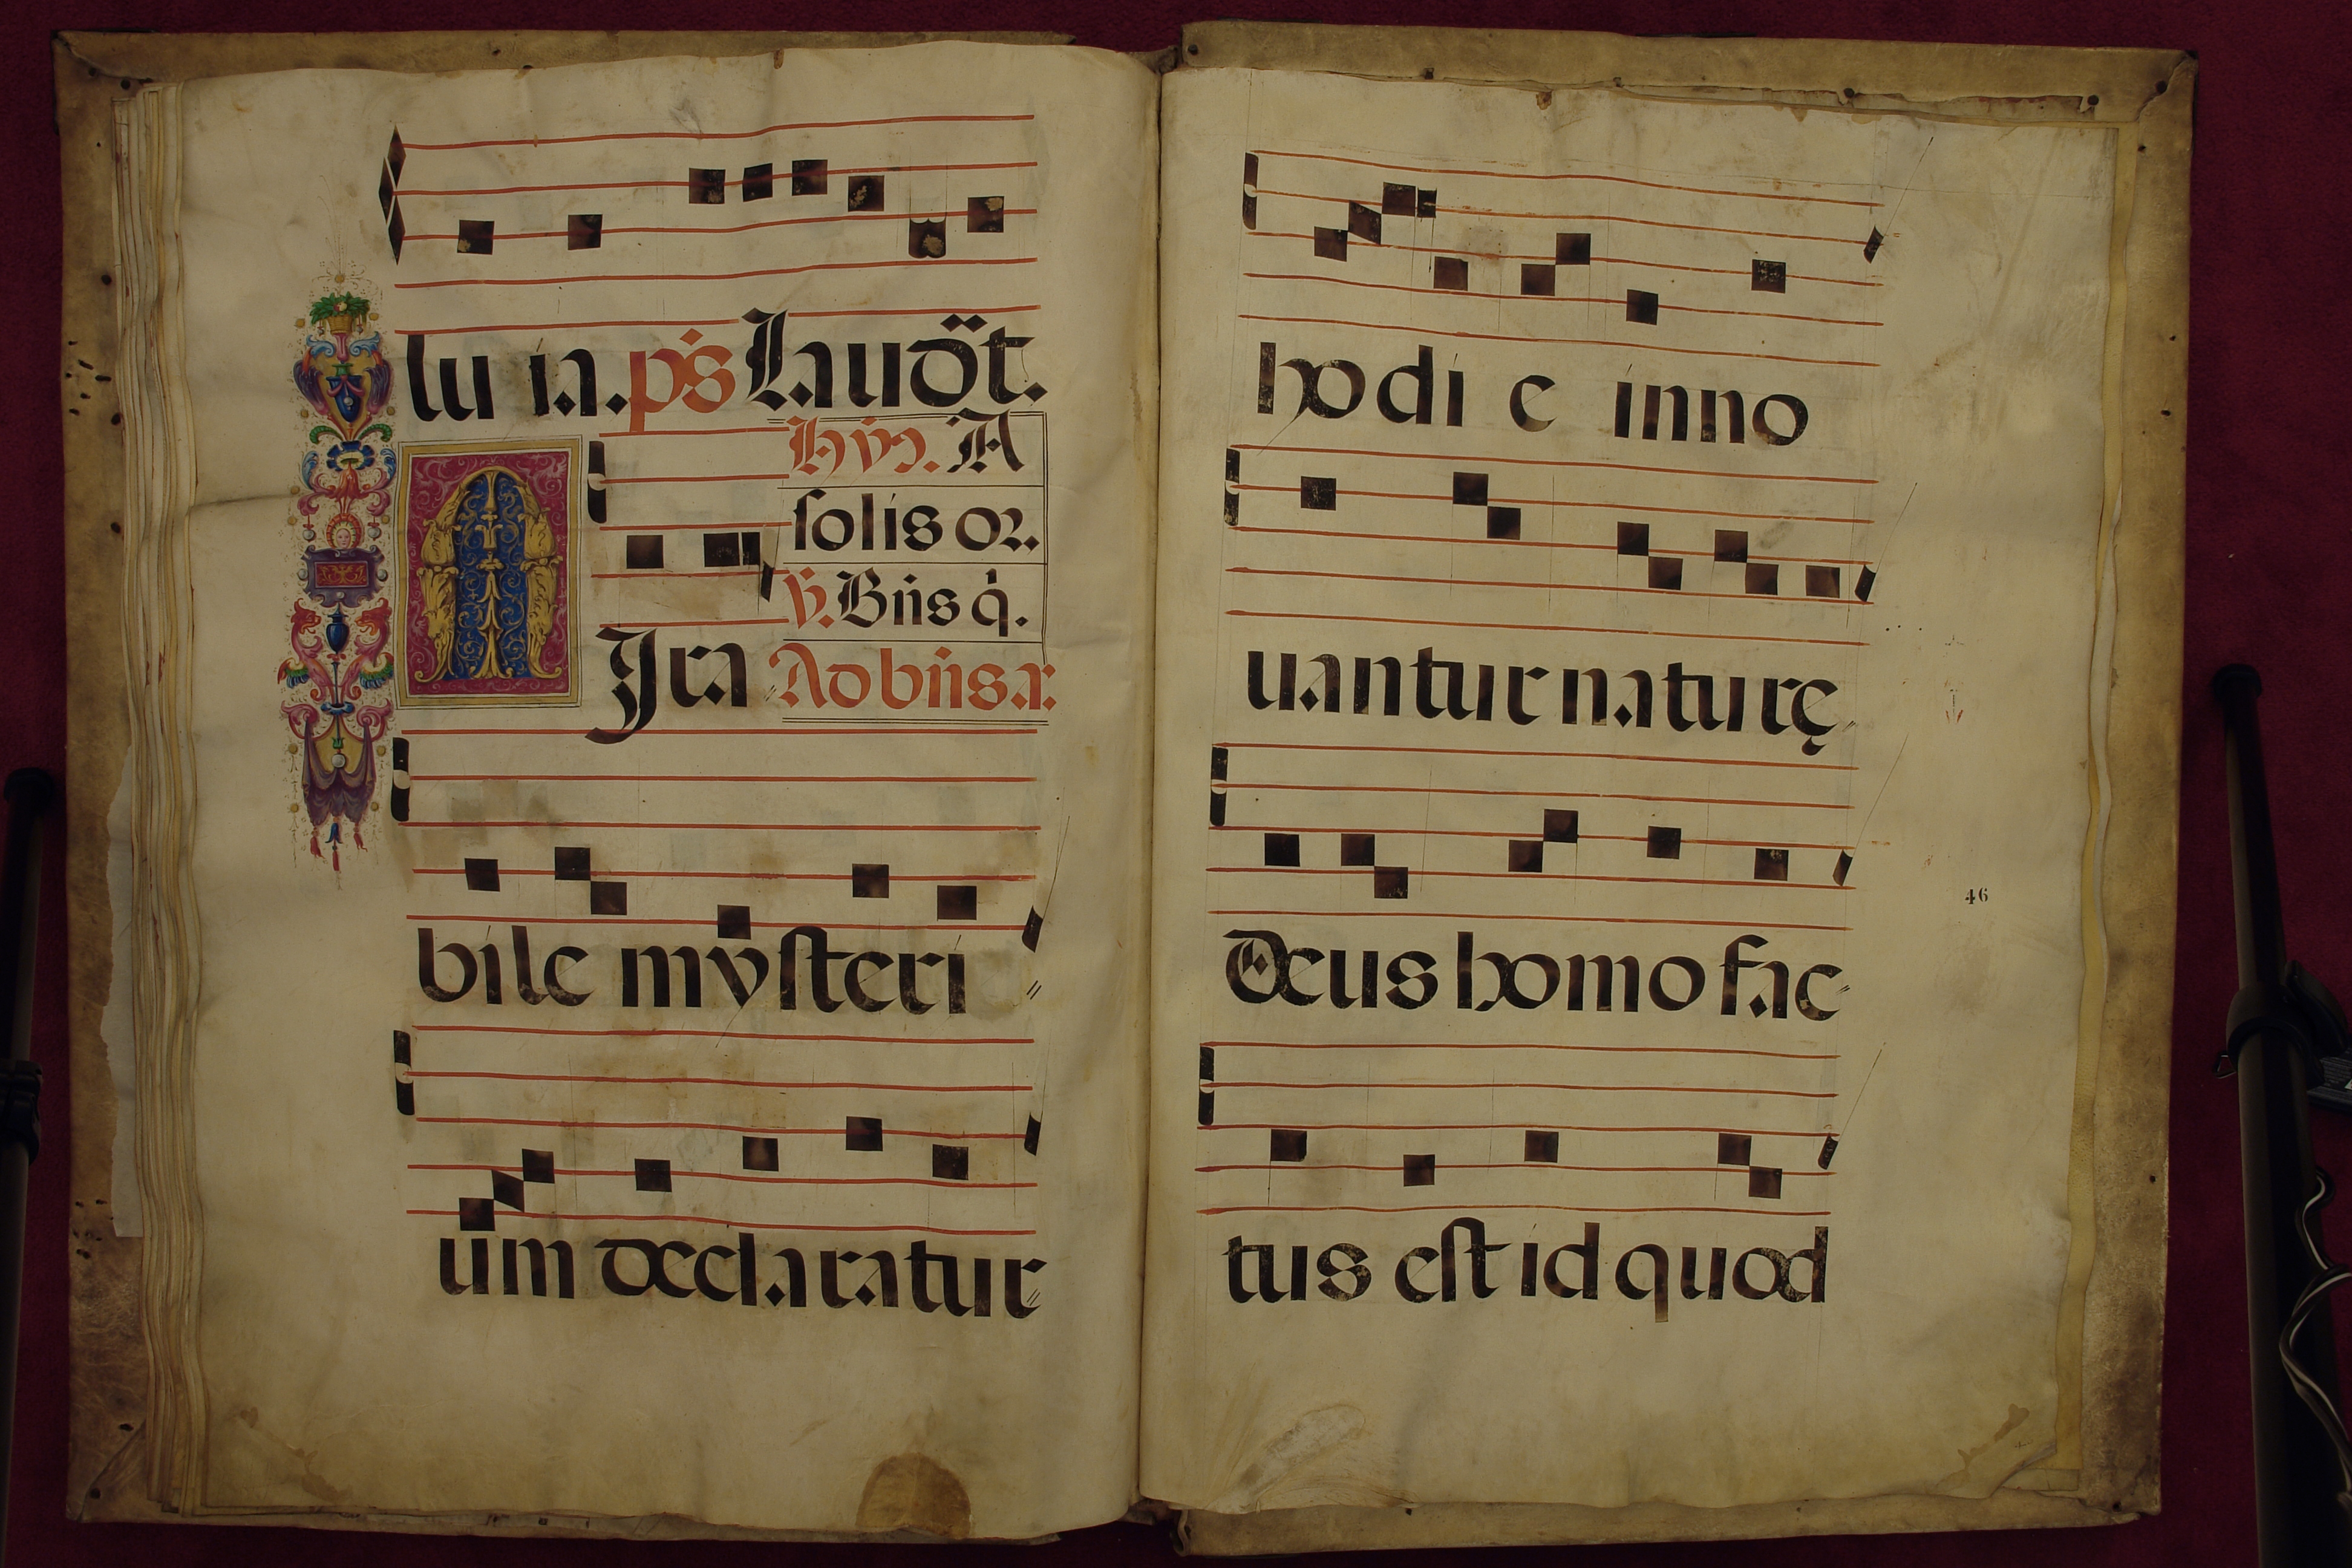 lu ia. ps Laudāt.
Hyn. A
solis or.
℣. Bn̄s q̇.
MIra Ad bn̄s. a:
bile mysteri
um declaratur
hodi e inno
uantur naturę
Deus homo fac
46
tus est id quod